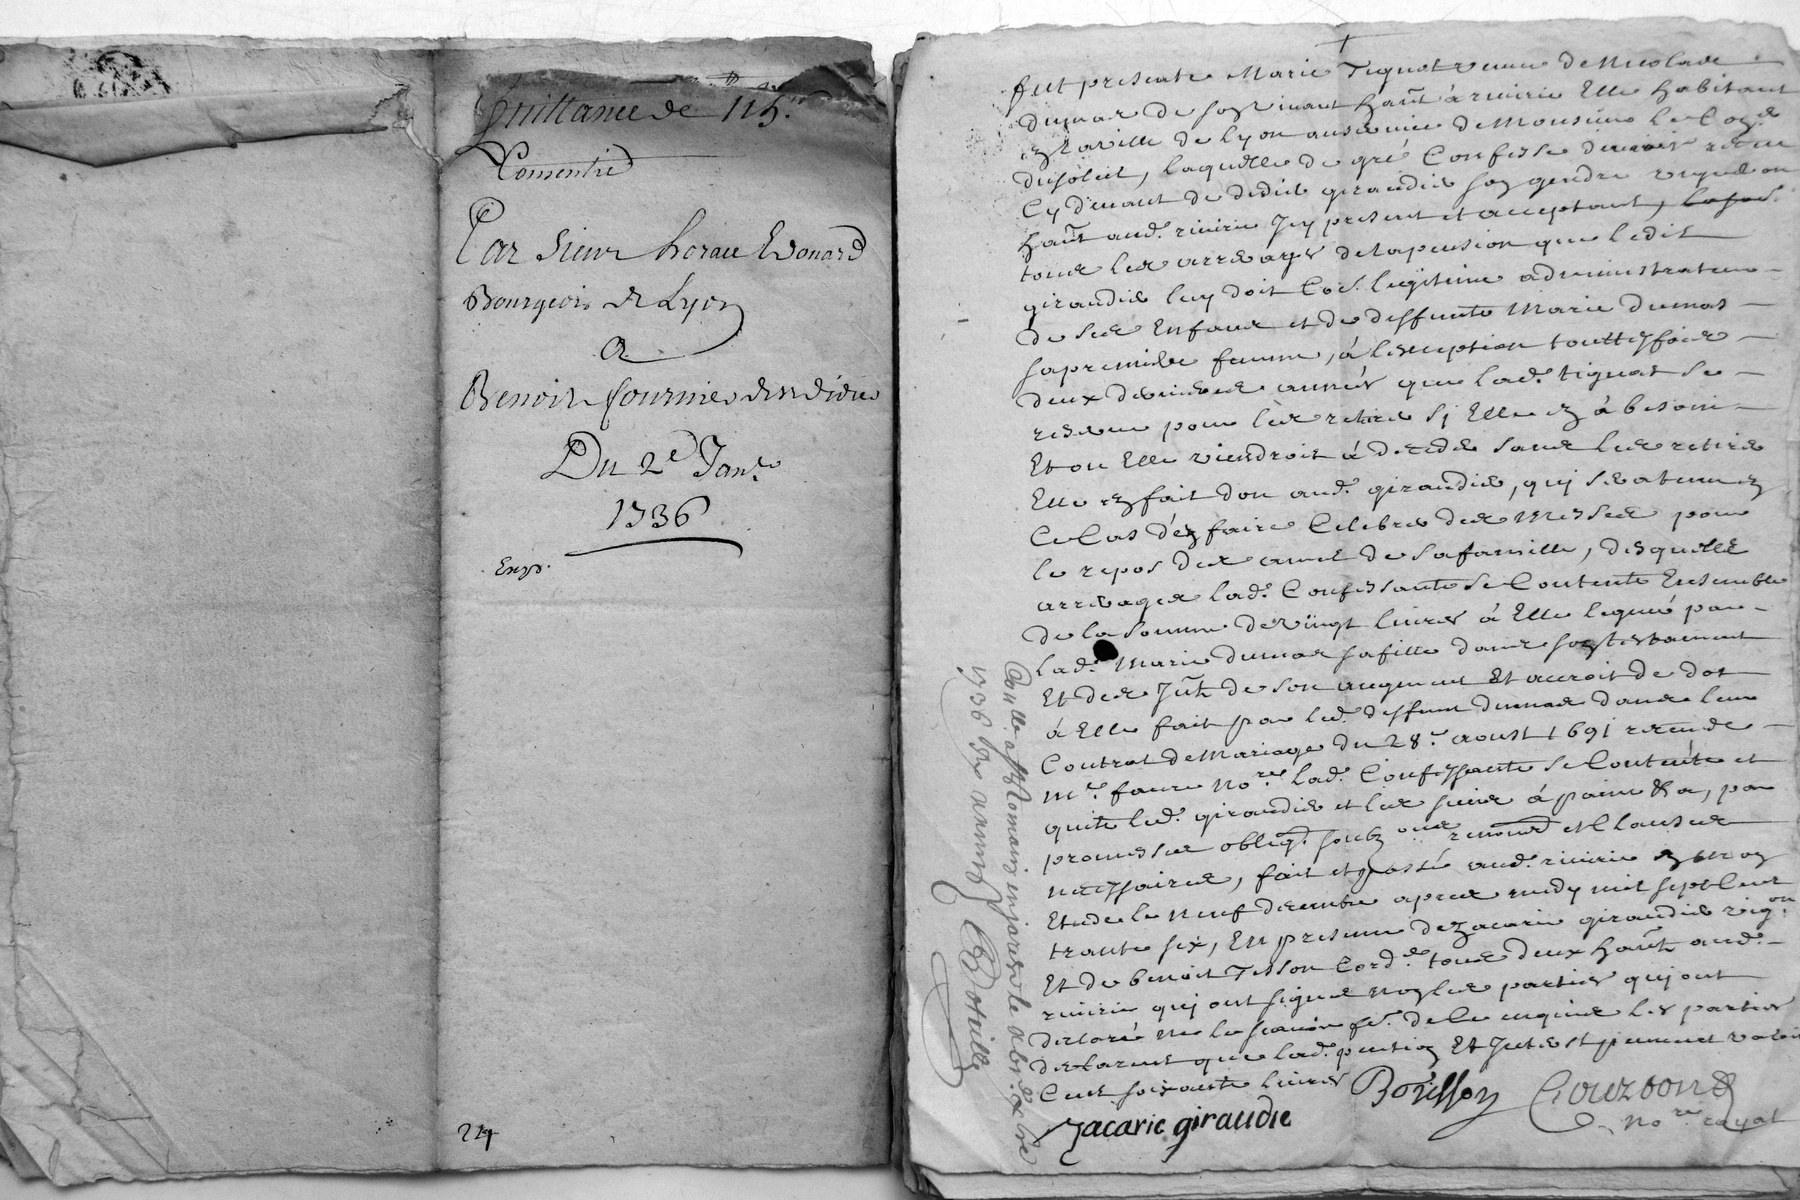 Quittance de 115.ᵗᵗ
Consentie
Par Sieur horace Edouard
Bourgeois de Lyon
A
Benoist fournier
Du 2.ᵉ Janᵛ.
1736
Exp.
24
fut presente Marie Tignat veuve de Nicolas
dumas de son vivant haᵇᵗ à rivirie Elle habitant
en la ville de Lyon
du soleil, laquelle de gré Confesse d'avoir receu
Cy devant de didier giraudie son gendre vigneron
haᵇᵗ aud. rivirie Icy present et acceptant,
tous les arrerages de la pension que ledit
giraudie luy doit Co.ᵉ legitime administrateur
de ses Enfans et de deffunte Marie dumas
sa premiere femme, à l'exception touttesfois
deux dernieres années que lad.ᵉ tignat se
reserve pour les retirer sj Elle en à besoin
Et ou Elle viendroit à deceder sans les retirer
Elle en fait don aud. giraudie, quj sera tenu en
Ce Cas d'en faire Celebrer des Messes pour
le repos des ames de sa famille, desquelles
arrerages lad.ᵉ Confessante se Contente Ensemble
de la somme de vingt livres à Elle legué par
lad.ᵉ Marie dumas sa fille dans son testament
Et des Jnᵗˢ de son augment Et acroit de dot
à Elle fait par led. deffunt dumas dans leur
Contrat de Mariage du 28.ᵉ aoust 1691 receu de
M.ᵉ faure No.ʳᵉ lad.ᵉ Confessante se Contente et
quitte led. giraudie et les siens à peine &a, par
promesses oblig.ᵒⁿ soubz renonᵒⁿ et Clauses
necessaires, fait et passé aud. rivirie en mon
Etude le neuf decembre apres midy mil sept Cent
trante six, En presence de Zacarie giraudie vig.ᵒⁿ
Et de benoit Tisson Cord.ᵉʳ tous deux haᵇᵗˢ aud.
rivirie quj ont signé non les parties quj ont
declaré ne le scavoir f.ᵉ de Ce enquises les parties
declarent que lad.ᵉ pention Et Jnterest peuvent valoir
Cent soixante livres
Zacarie giraudie
Gourdon
No.ʳᵉ royal
1736